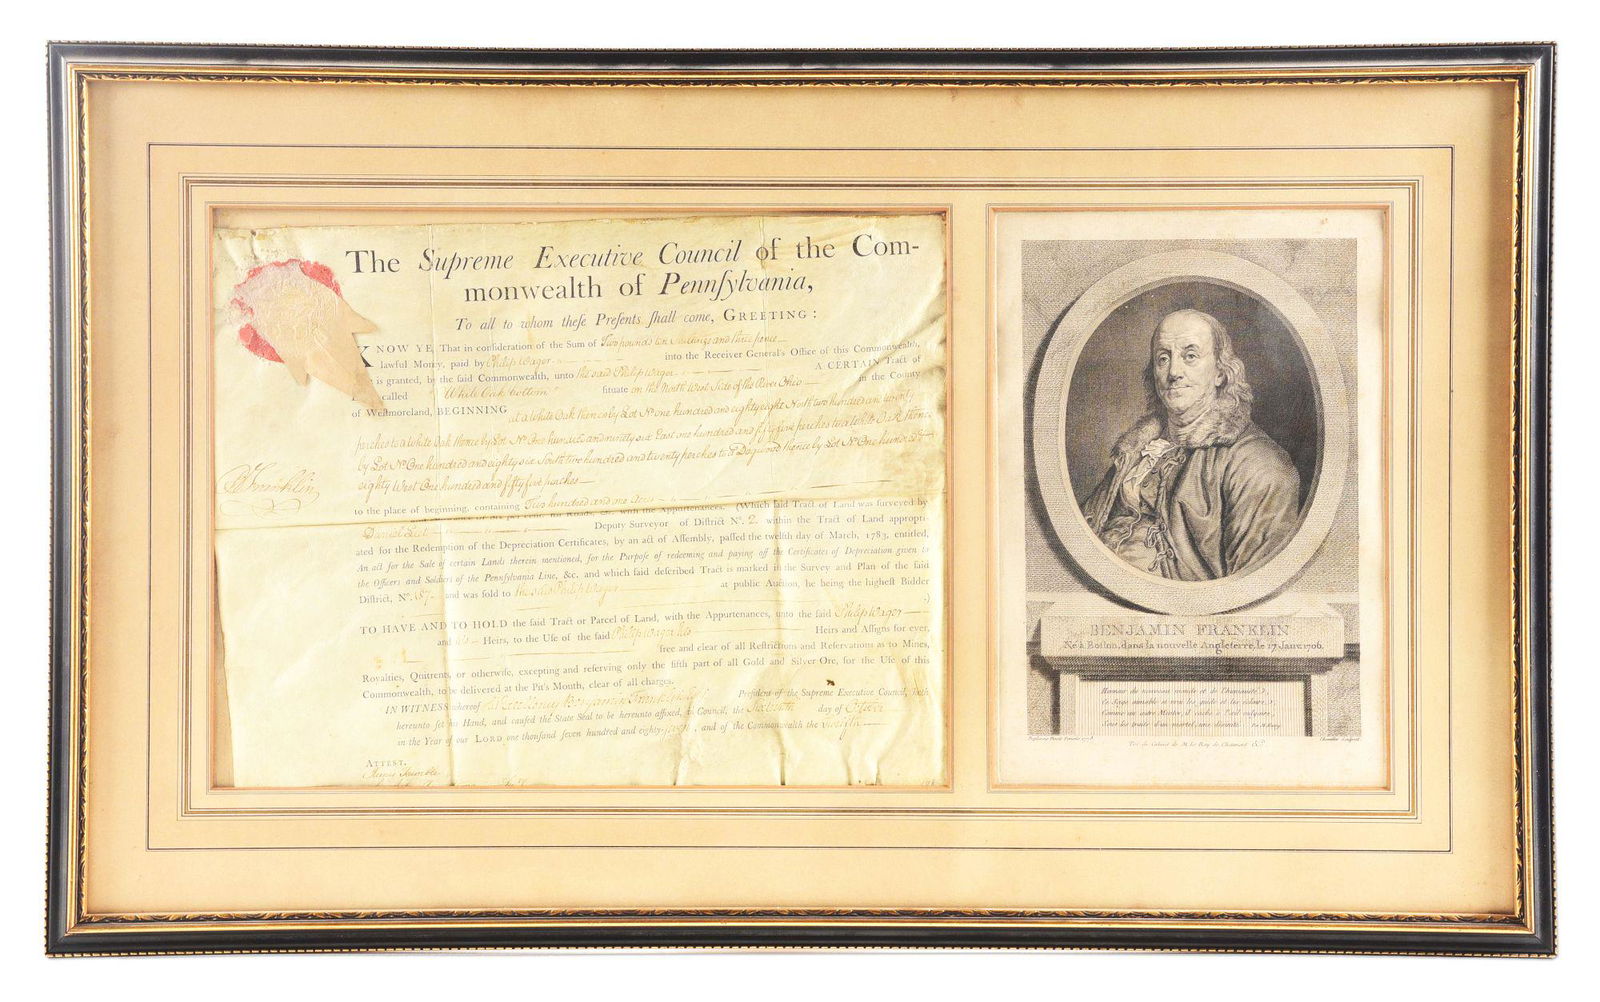 The Supreme Executive Council of the Com-
monwealth of Pennſylvania,
To all to whom theſe Preſents ſhall come, GREETING:
KNOW YE, That in conſideration of the Sum of Two pounds ten Shillings and three pence
lawful Money, paid by Philip Wager into the Receiver General's Office of this Commonwealth,
is granted, by the ſaid Commonwealth, unto the said Philip Wager A CERTAIN Tract of
called White Oak bottom ſituate on the North West Side of the River Ohio in the County
of Weſtmoreland, BEGINNING at a White Oak thence by Lot No. one hundred and eighty eight North two hundred and twenty
perches to a White Oak thence by Lot No. One hundred and ninety six East one hundred and fifty five perches to a White Oak thence
by Lot No. One hundred and eighty six South two hundred and twenty perches to a Dogwood thence by Lot No. One hundred &
eighty West One hundred and fifty five perches
B Franklin
to the place of beginning, containing Two hundred and one Acres
for Roads, &c. with the Appurtenances. (Which ſaid Tract of Land was ſurveyed by
Daniel Leet Deputy Surveyor of Diſtrict No. 2. within the Tract of Land appropri-
ated for the Redemption of the Depreciation Certificates, by an act of Aſſembly, paſſed the twelfth day of March, 1783, entitled,
An act for the Sale of certain Lands therein mentioned, for the Purpoſe of redeeming and paying off the Certificates of Depreciation given to
the Officers and Soldiers of the Pennſylvania Line, &c. and which ſaid deſcribed Tract is marked in the Survey and Plan of the ſaid
Diſtrict, No. 187 and was ſold to the said Philip Wager at public Auction, he being the higheſt Bidder
.)
TO HAVE AND TO HOLD the ſaid Tract or Parcel of Land, with the Appurtenances, unto the ſaid Philip Wager
and his Heirs, to the Uſe of the ſaid Philip Wager his Heirs and Aſſigns for ever,
free and clear of all Reſtrictions and Reſervations as to Mines,
Royalties, Quitrents, or otherwiſe, excepting and reſerving only the fifth part of all Gold and Silver Ore, for the Uſe of this
Commonwealth, to be delivered at the Pit's Mouth, clear of all charges.
IN WITNESS whereof Benjamin Franklin Preſident of the Supreme Executive Council, hath
hereunto ſet his Hand, and cauſed the State Seal to be hereunto affixed, in Council, the day of October
in the Year of our LORD one thouſand ſeven hundred and eighty- and of the Commonwealth the twelfth
ATTEST.
BENJAMIN FRANKLIN
Né à Boſton, dans la nouvelle Angleterre, le 17 Janv. 1706.
Honneur du nouveau monde et de l'humanité,
Ce Sage aimable et vrai les guide et les éclaire;
Comme un autre Mentor, il cache à l'œil vulgaire,
Sous les traits d'un mortel, une divinité.
Tiré du Cabinet de M. Le Ray de Chaumont &c.